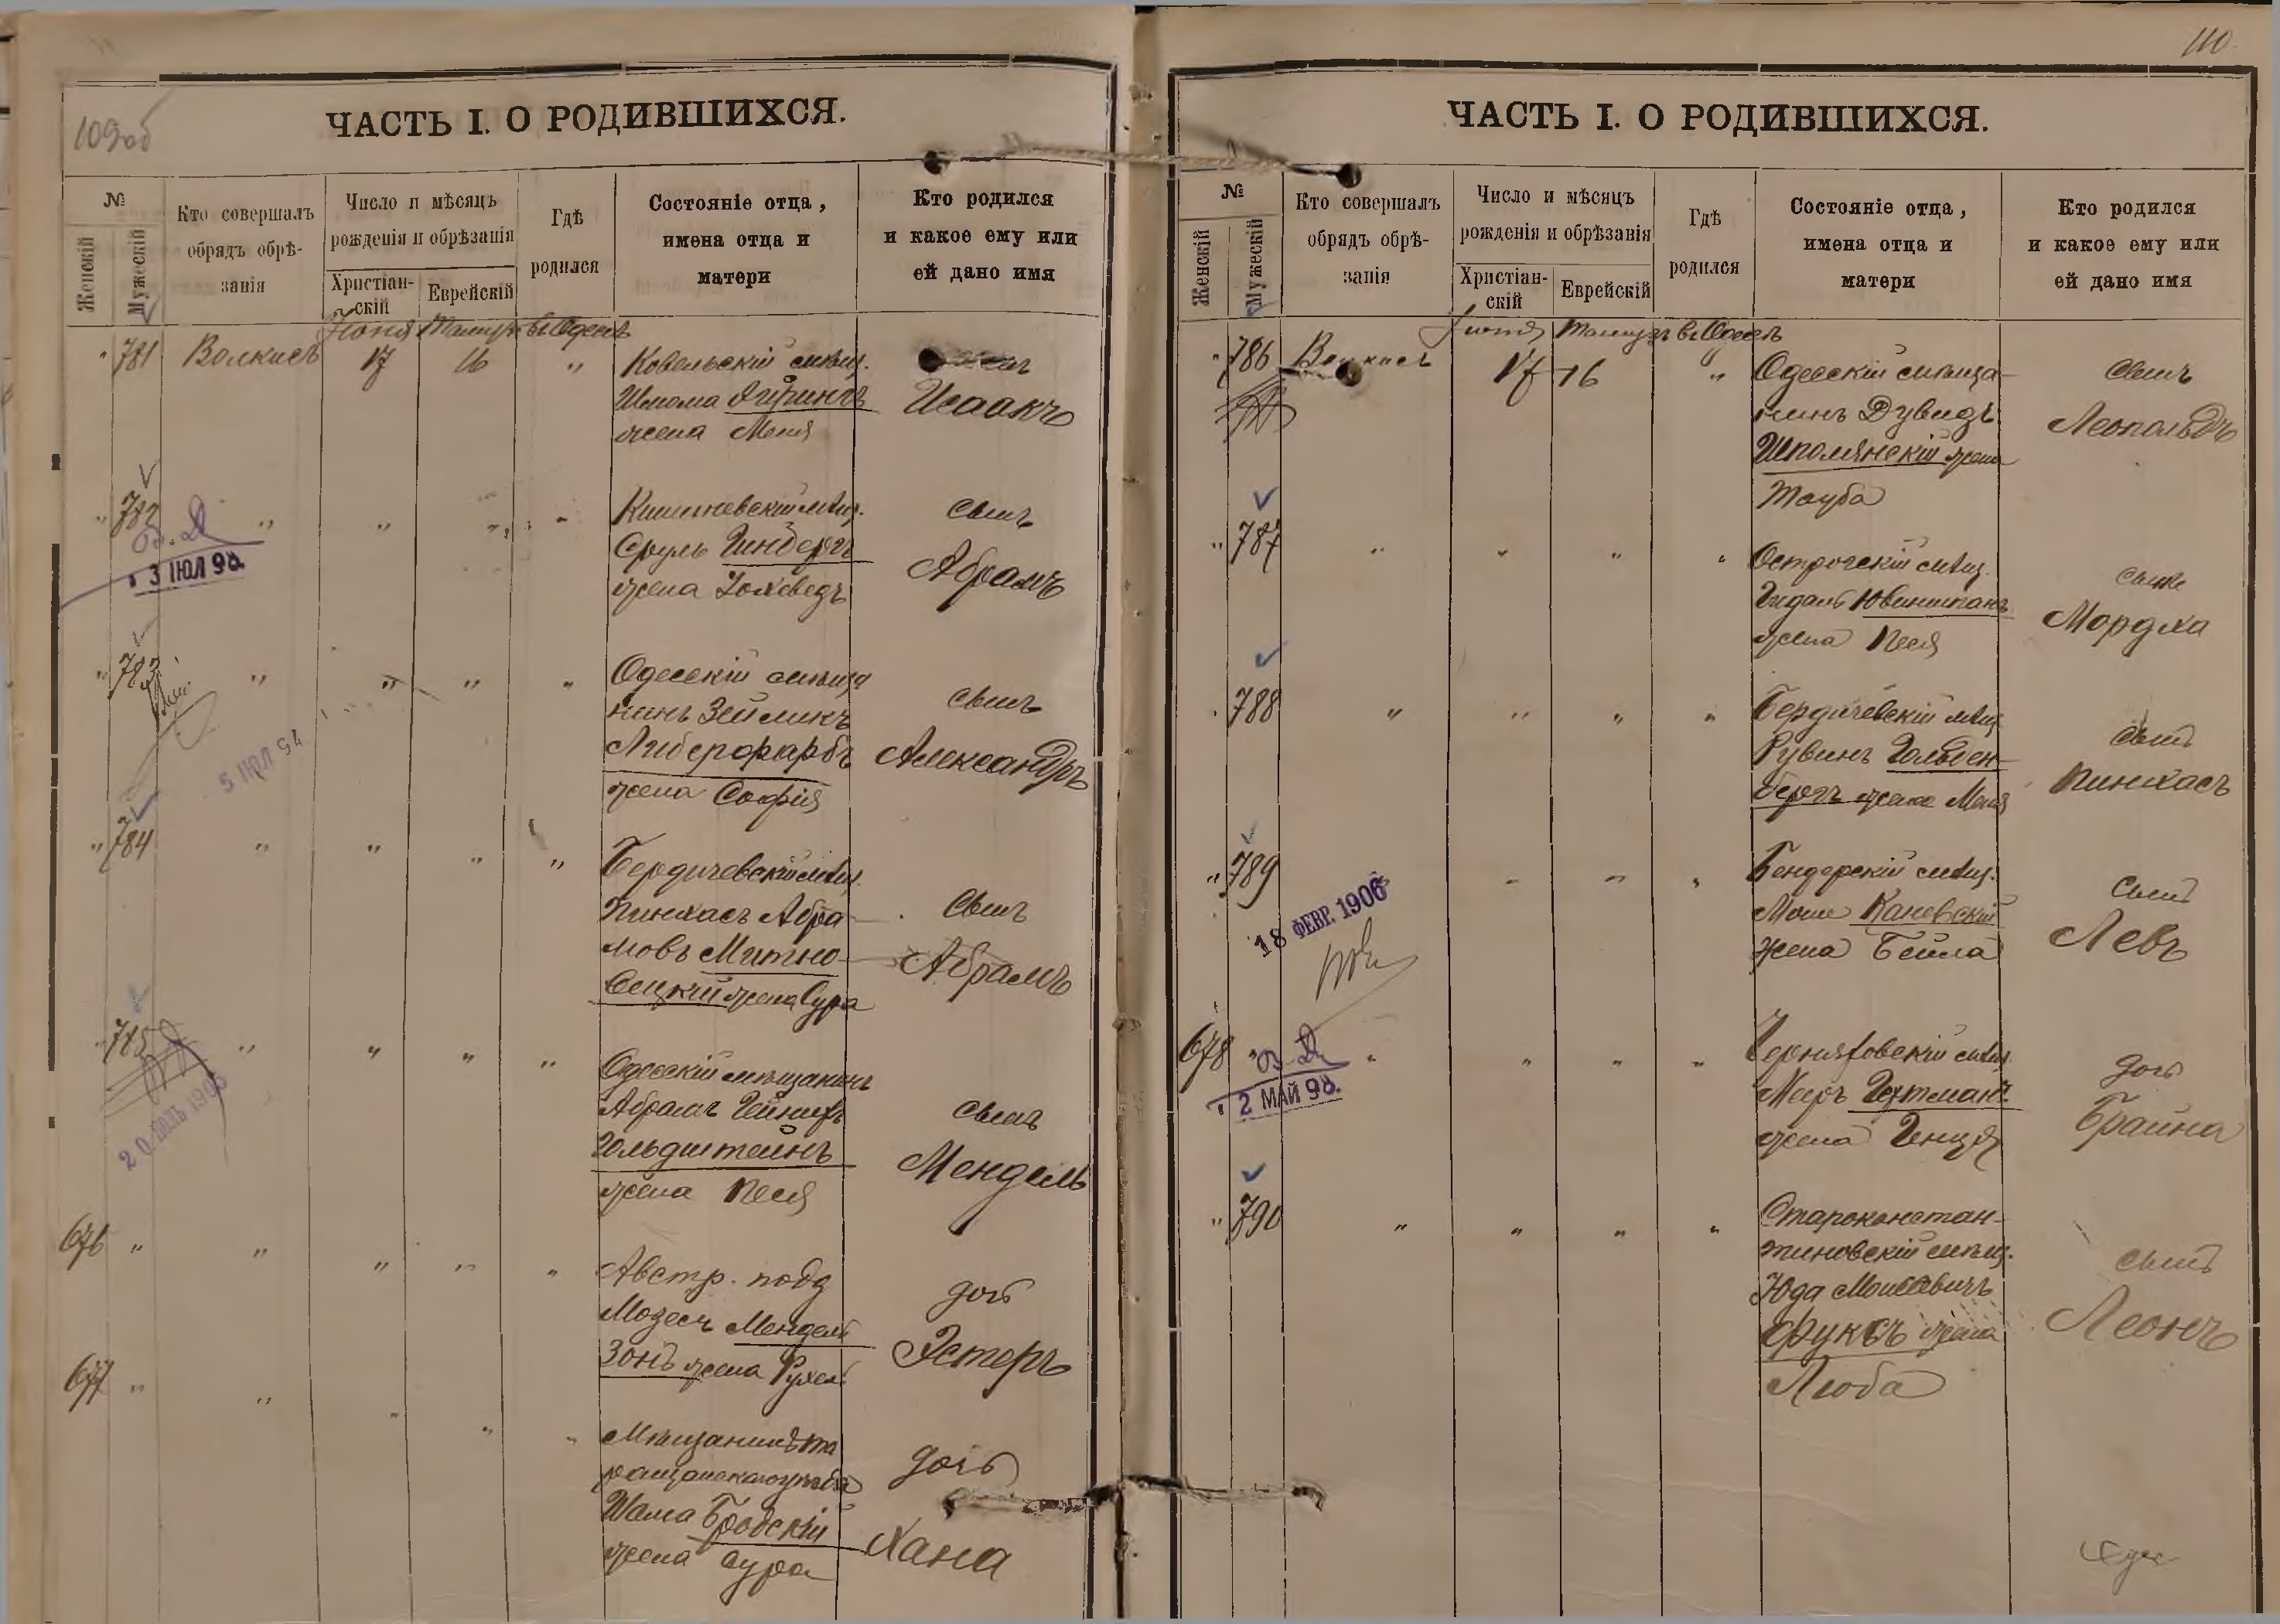 109об
ЧАСТЬ I. О РОДИВШИХСЯ.
№
Женскій
Мужескій
Кто совершалъ
обрядъ обрѣ-
занія
Число и мѣсяцъ
рожденія и обрѣзанія
Христіан-
скій
Еврейскій
Гдѣ
родился
Состояніе отца,
имена отца и
матери
Кто родился
и какое ему или
ей дано имя
Іюня Тамузъ въ Одессѣ
" 781 Волкисъ 17 16 " Ковельскій мѣщ.
Шлома
жена Меня
Исаакъ
" 782 " " " " Кишиневскій мѣщ.
Сруль Гинбергъ
жена Іохеведъ
сынъ
Абрамъ
3 ІЮЛ 98
" 783 " " " " Одесскій мѣща
нинъ Зейликъ
Либерфарбъ
жена Софія
сынъ
Александръ
5 ІЮЛ 94
" 784 " " " " Бердичевскій мѣщ.
Пинхасъ Абра-
мовъ Митно-
вецкій жена Сура
сынъ
Абрамъ
" 785 " " " " Одесскій мѣщанинъ
Абрамъ Гейнихъ
Гольдштейнъ
жена Песя
сынъ
Мендель
676 " " " " " Австр. подд
Мозесъ Мендель
зонъ жена Рухель
дочь
Эстеръ
677 " " " " " Мѣщанинъ Та
ращанскаго уѣзда
Шама Бродскій
жена Сура
дочь
Хана
110
ЧАСТЬ I. О РОДИВШИХСЯ.
№
Женскій
Мужескій
Кто совершалъ
обрядъ обрѣ-
занія
Число и мѣсяцъ
рожденія и обрѣзанія
Христіан-
скій
Еврейскій
Гдѣ
родился
Состояніе отца,
имена отца и
матери
Кто родился
и какое ему или
ей дано имя
Іюня Тамузъ въ Одессѣ
" 786 Волкисъ 17 16 " Одесскій мѣща-
нинъ Дувидъ
Шполянскій жена
Тауба
сынъ
Леопольдъ
" 787 " " " " Острогскій мѣщ.
жена Песя
сынъ
Мордха
" 788 " " " " Бердичевскій мѣщ
Рувинъ Гольден-
бергъ жена Меня
сынъ
Пинхасъ
" 789 " " " Бендерскій мѣщ.
Моше Каневскій
жена Бейла
сынъ
Левъ
18 ФЕВР. 1906
678 " " " " " Черняховскій мѣщ.
Мееръ Гехтманъ
жена Генця
дочь
Брайна
2 МАЙ 98.
" 790 " " " " Староконстан-
тиновскій мѣщ.
Юда Моисеевичъ
Фуксъ жена
Люба
сынъ
Леонъ